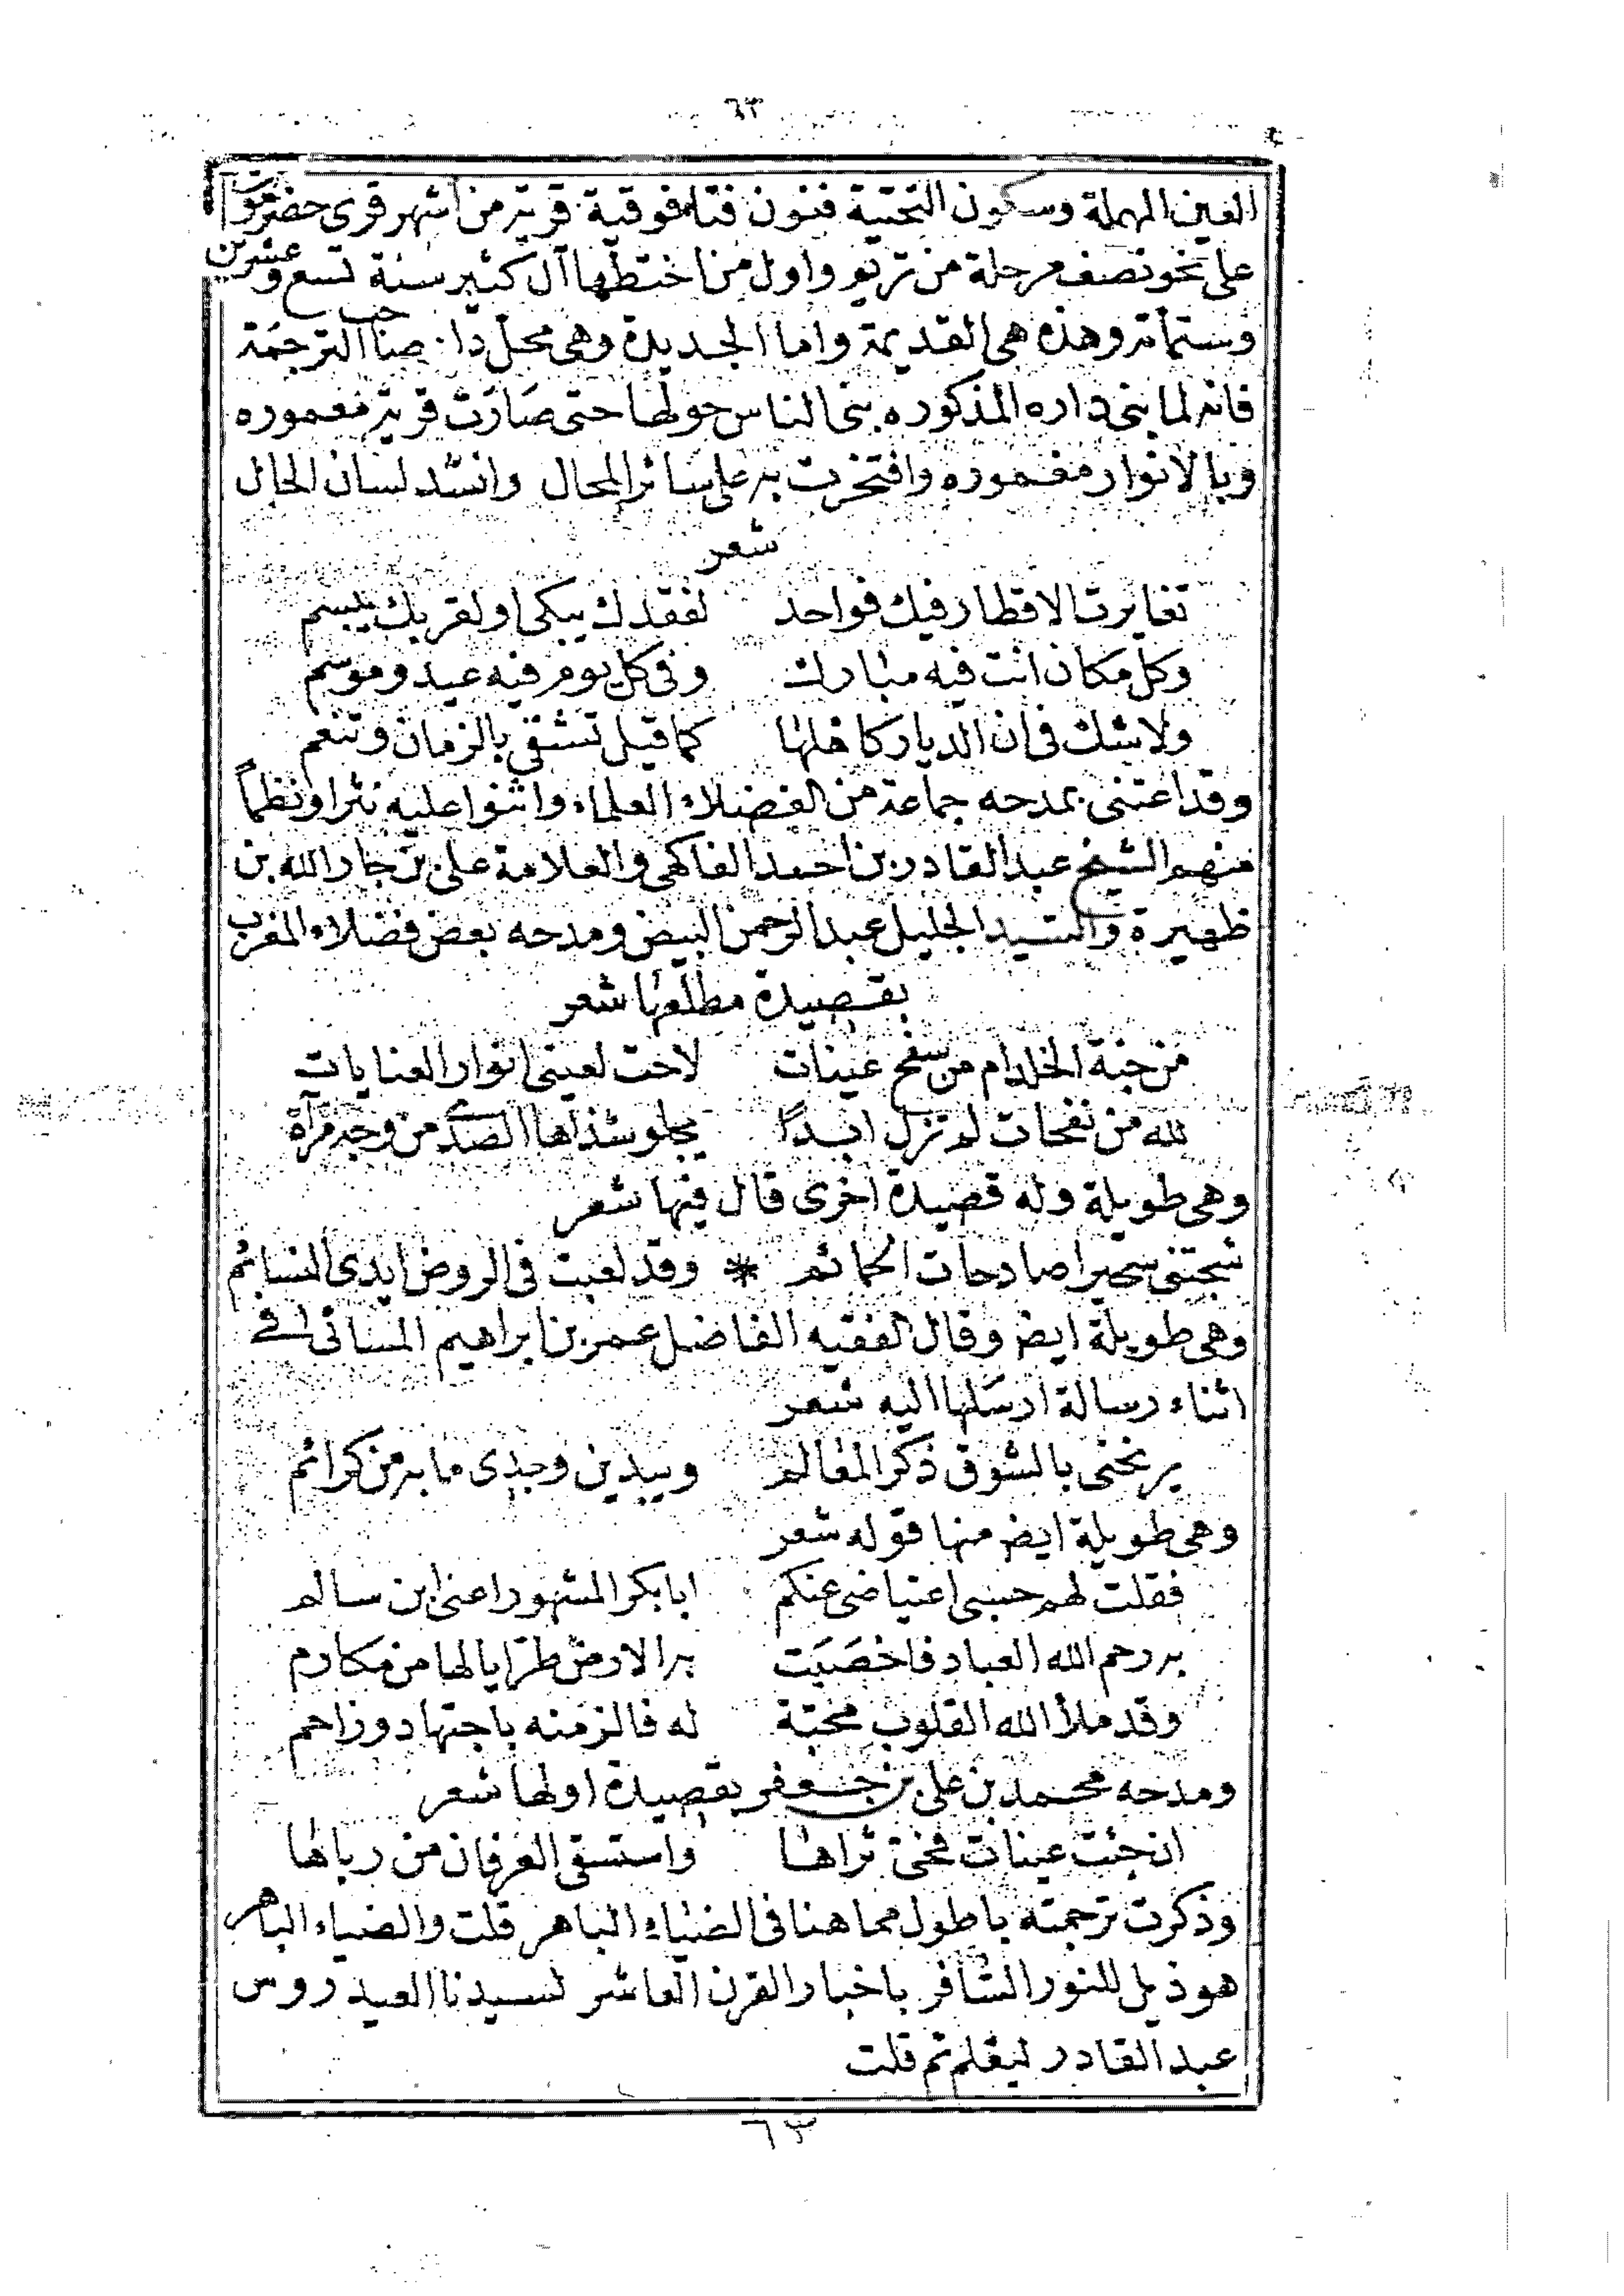 ٦٣
العين المهملة وسكون التحتية فنون فتاء فوقية قرية من أشهر قرى حضرموت
على نحو نصف مرحلة من تريم واول من اختطها آل كثير سنة تسع وعشرين
وستمأئة وهذه هي القديمة واما الجديدة وهي محل دار صاحب الترجمة
فانه لما بنى داره المذكوره بنى الناس حولها حتى صارت قرية معموره
وبالانوار مغموره وافتخرت به على سائر المحال وانشد لسان الحال
شعر
تغايرت الاقطار فيك فواحد لفقدك يبكي او لقربك يبسم
وكل مكان انت فيه مبارك وفي كل يوم فيه عيد وموسم
ولا شك في ان الديار كاهلها كما قيل تشقى بالزمان وتنعم
وقد اعتنى بمدحه جماعة من الفضلاء العلماء واثنوا عليه نثرا ونظماً
منهم الشيخ عبد القادر بن احمد الفاكهي والعلامة علي بن جار الله بن
ظهيرة والسيد الجليل عبد الرحمن البيض ومدحه بعض فضلاء المغرب
بقصيدة مطلعها شعر
من جنة الخلد ام من سفح عينات لاحت لعيني انوار العنايات
لله من نفحات لم تزل ابداً يجلو شذاها الصدى من وجه مرآة
وهي طويلة وله قصيدة اخرى قال فيها شعر
شجتني سحيرا صادحات الحمائم * وقد لعبت في الروض ايدي النسائم
وهي طويلة ايض وقال الفقيه الفاضل عمر بن ابراهيم في
اثناء رسالة ارسلها اليه شعر
يرنحني بالشوق ذكر المعالم ويبدين وجدي ما به من كرائم
وهي طويلة ايض منها قوله شعر
فقلت لهم حسبي اعتياضي عنكم ابا بكر المشهور اعني ابن سالم
به رحم الله العباد فاخصبت به الارض طرا يا لها من مكارم
وقد ملأ الله القلوب محبة له فالزمنه باجتهاد وزاحم
ومدحه محمد بن علي بن جعفر بقصيدة اولها شعر
ان جئت عينات فحي ثراها واستسقى العرفان من رباها
وذكرت ترجمته باطول مما هنا في الضياء الباهر قلت والضياء الباهر
هو ذيل للنور السافر باخبار القرن العاشر لسيدنا العيدروس
عبد القادر ليعلم ثم قلت
٦٣